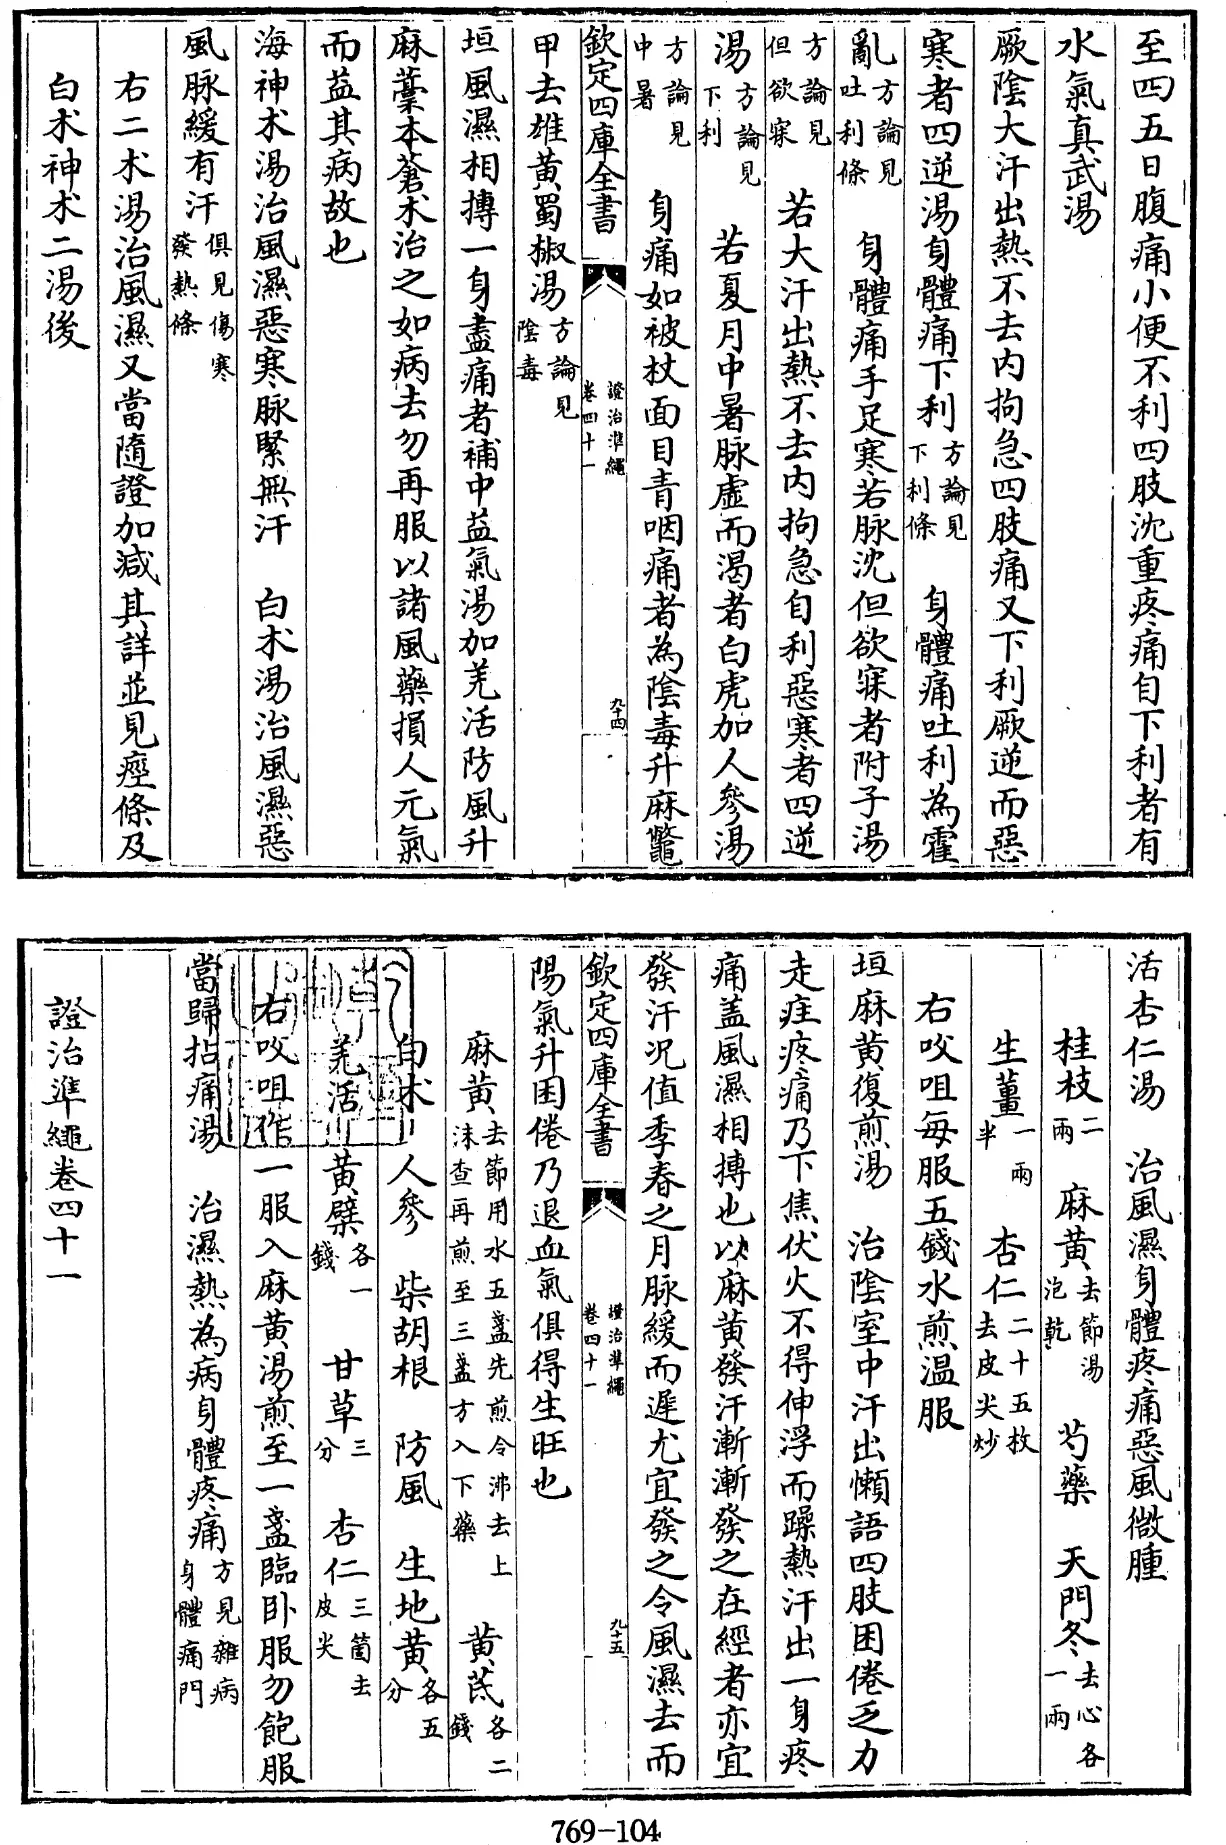 至四五日腹痛小便不利四肢沈重疼痛自下利者有
水氣真武湯
厥陰大汗出熱不去内拘急四肢痛又下利厥逆而惡
寒者四逆湯身體痛下利方論見下利條 身體痛吐利為霍
亂方論見吐利條 身體痛手足寒若脉沈但欲寐者附子湯
方論見但欲寐 若大汗出熱不去内拘急自利惡寒者四逆
湯方論見下利 若夏月中暑脉虚而渴者白虎加人參湯
方論見中暑 身痛如被杖面目青咽痛者為陰毒升麻鼈
欽定四庫全書 證治準繩卷四十一 九十四
甲去雄黄蜀椒湯方論見陰毒
垣風濕相搏一身盡痛者補中益氣湯加羌活防風升
麻藁本蒼术治之如病去勿再服以諸風藥損人元氣
而益其病故也
海神术湯治風濕惡寒脉緊無汗 白术湯治風濕惡
風脉緩有汗俱見傷寒發熱條
右二术湯治風濕又當隨證加減其詳並見痙條及
白术神术二湯後
活杏仁湯 治風濕身體疼痛惡風微腫
桂枝二兩 麻黄去節湯泡乾 芍藥 天門冬去心各一兩
生薑一兩半 杏仁二十五枚去皮尖炒
右㕮咀每服五錢水煎温服
垣麻黄復煎湯 治陰室中汗出懶語四肢困倦乏力
走疰疼痛乃下焦伏火不得伸浮而躁熱汗出一身疼
痛蓋風濕相搏也以麻黄發汗漸漸發之在經者亦宜
發汗况值季春之月脉緩而遲尤宜發之令風濕去而
欽定四庫全書 證治準繩卷四十一 九十五
陽氣升困倦乃退血氣俱得生旺也
麻黄去節用水五盞先煎令沸去上沫查再煎至三盞方入下藥 黄芪各二錢
白术 人參 柴胡根 防風 生地黄各五分
羌活 黄蘗各一錢 甘草三分 杏仁三箇去皮尖
右㕮咀作一服入麻黄湯煎至一盞臨卧服勿飽服
當歸拈痛湯 治濕熱為病身體疼痛方見雜病身體痛門
證治準繩卷四十一
769-104